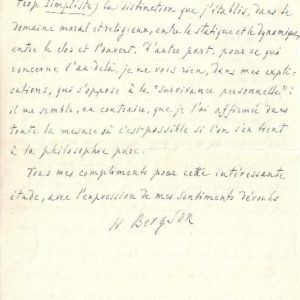 trop simpliste) la distinction que j'établis, dans le
domaine moral et religieux, entre le statique et le dynamique,
entre le clos et l'ouvert. D'autre part, pour ce qui
concerne l'au-delà, je ne vois rien, dans mes expli-
cations, qui s'oppose à la "survivance personnelle" :
il me semble, au contraire, que je l'ai affirmée dans
toute la mesure où c'est possible si l'on s'en tient
à la philosophie pure.
Tous mes compliments pour cette intéressante
étude, avec l'expression de mes sentiments dévoués
H Bergson